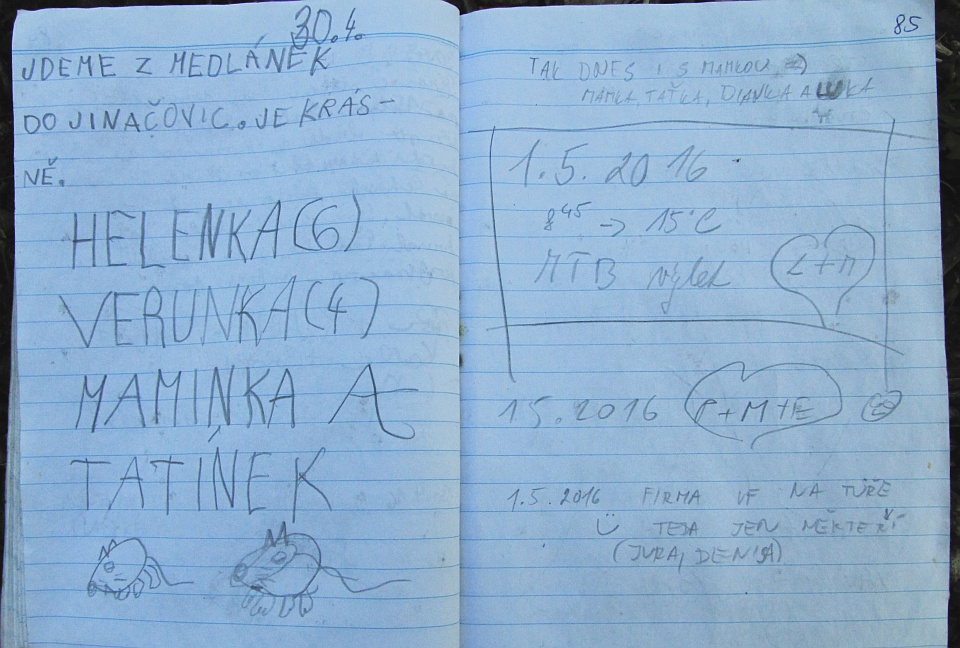 30.4.
JDEME Z MEDLÁNEK
DO JINAČOVIC. JE KRÁS-
NĚ.
HELENKA (6)
VERUNKA (4)
MAMINKA A
TATÍNEK
85
TAK DNES I S MAMKOU
MAMKA, TAŤKA, DIANKA A LUKA
1.5.2016
8 45 -> 15°C
MTB výlet
L+M
1 5.2016 P+M+E
1.5.2016 FIRMA VF NA TÚŘE
TEDA JEN NĚKTEŘÍ
(JURA, DENISA)